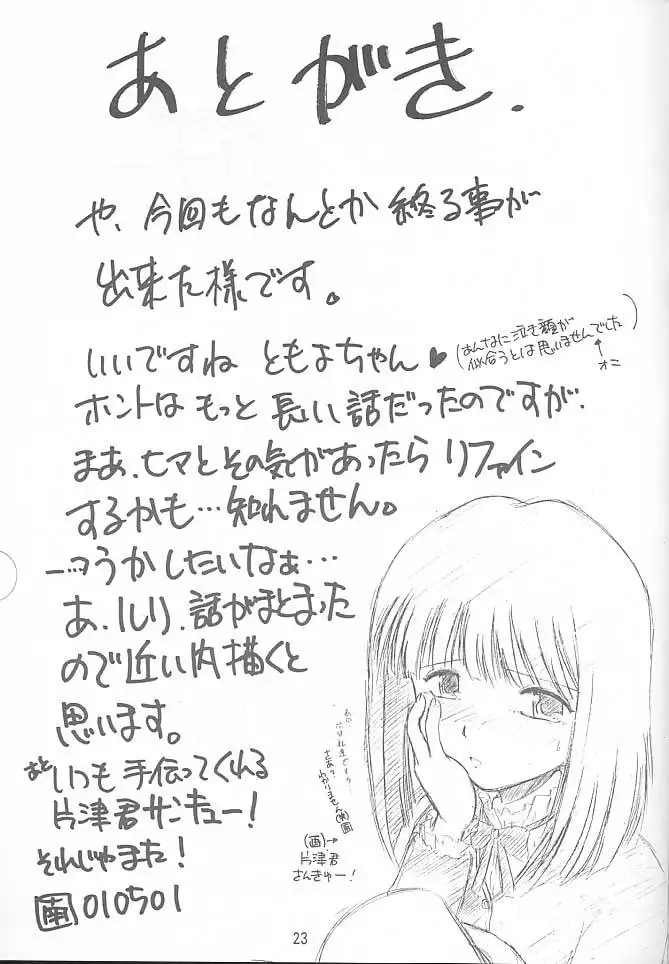 あとがき.
や、今回もなんとか終る事が
出来た様です。
いいですね ともよちゃん♥
(あんなに泣き顔が
似合うとは思いませんでした)
↑
オニ
ホントは もっと 長い 話だったのですが.
まあ.ヒマとその気があったら リファイン
するかも…知れません。
つうかしたいなぁ…
あ、しり、話がまとまった
ので近い内描くと
思います。
あと いつも 手伝ってくれる
片津君サンキュー!
それじゃまた!
010501
さあ?
わかりません
片津君
さんきゅー!
23